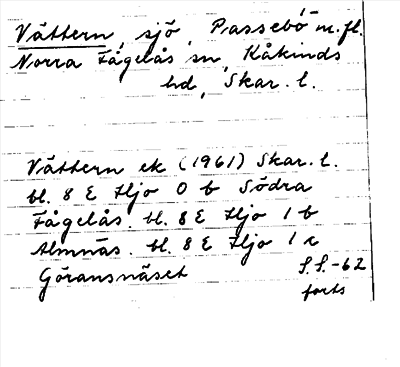 Vättern, sjö, Passebo m.fl.
Norra Fågelås sn, Kåkinds
hd, Skar. l.
Vättern ek (1961) Skar. l.
bl. 8 E Hjo 0 b Södra
Fågelås. bl. 8 E Hjo 1 b
Almnäs. bl. 8 E Hjo 1 c
Göransnäset
S.S.-62
forts